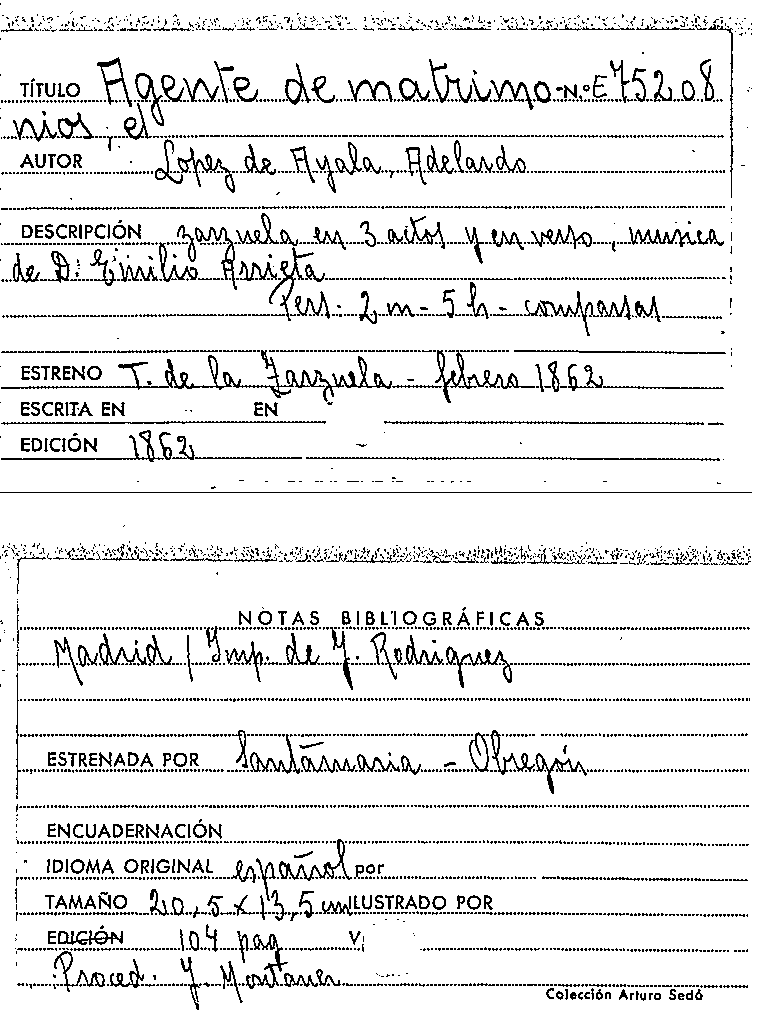 TÍTULO Agente de matrimo- N.º E 75208
nios, el
AUTOR Lopez de Ayala, Adelardo
DESCRIPCIÓN zarzuela en 3 actos y en verso, musica
de D. Emilio Arrieta
Pers. 2 m - 5 h - comparsas
ESTRENO T. de la Zarzuela - febrero 1862
ESCRITA EN EN
EDICIÓN 1862
NOTAS BIBLIOGRÁFICAS
Madrid / Imp. de J. Rodriguez
ESTRENADA POR Santamaria - Obregón
ENCUADERNACIÓN
IDIOMA ORIGINAL español por
TAMAÑO 20,5 x 13,5 cm ILUSTRADO POR
EDICIÓN 104 pag V
Proced. J. Montaner
Colección Arturo Sedó